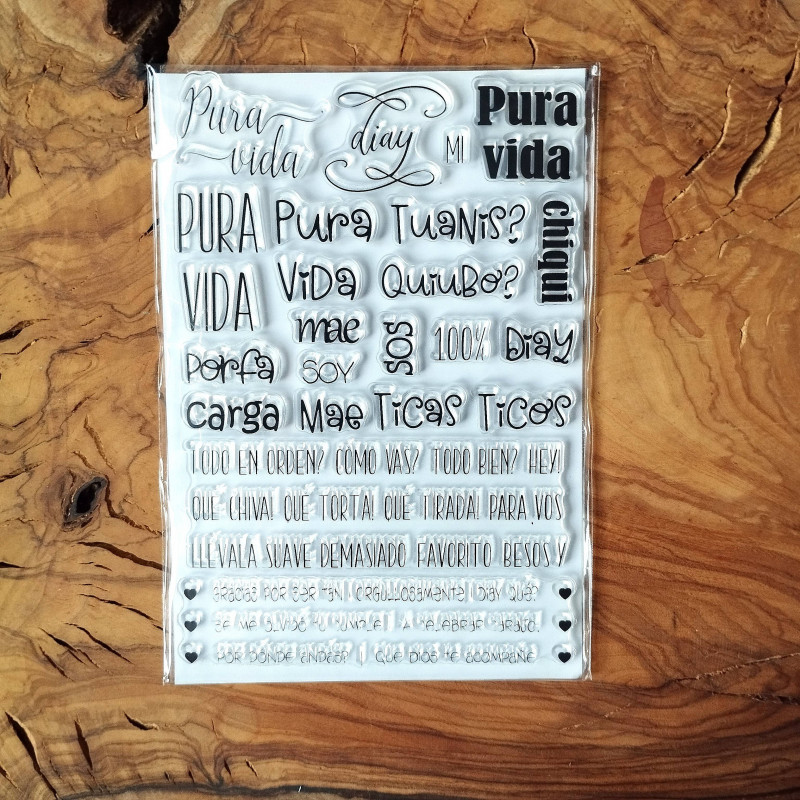 Pura vida
diay
MI
Pura vida
PURA VIDA
Pura Vida
Tuanis?
chiqui
Quiubo?
mae
SOS
100%
Diay
Porfa
SOY
carga
Mae
Ticas
Ticos
TODO EN ORDEN? CÓMO VAS? TODO BIEN? HEY!
QUÉ CHIVA! QUÉ TORTA! QUÉ TIRADA! PARA VOS
LLÉVALA SUAVE DEMASIADO FAVORITO BESOS Y
GRACIAS POR SER TAN ORGULLOSAMENTE DIAY QUÉ?
SE ME OLVIDÓ TU CUMPLE! A CELEBRAR CARAJO!
POR DÓNDE ANDÁS? QUE DIOS TE ACOMPAÑE